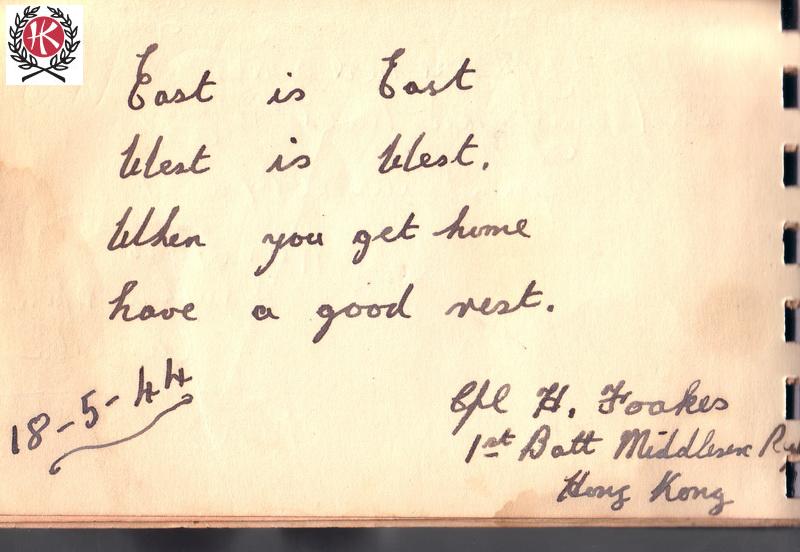 HK
East is East
West is West.
When you get home
have a good rest.
18-5-44
Cpl H. Foakes
1st Batt Middlesex
Hong Kong